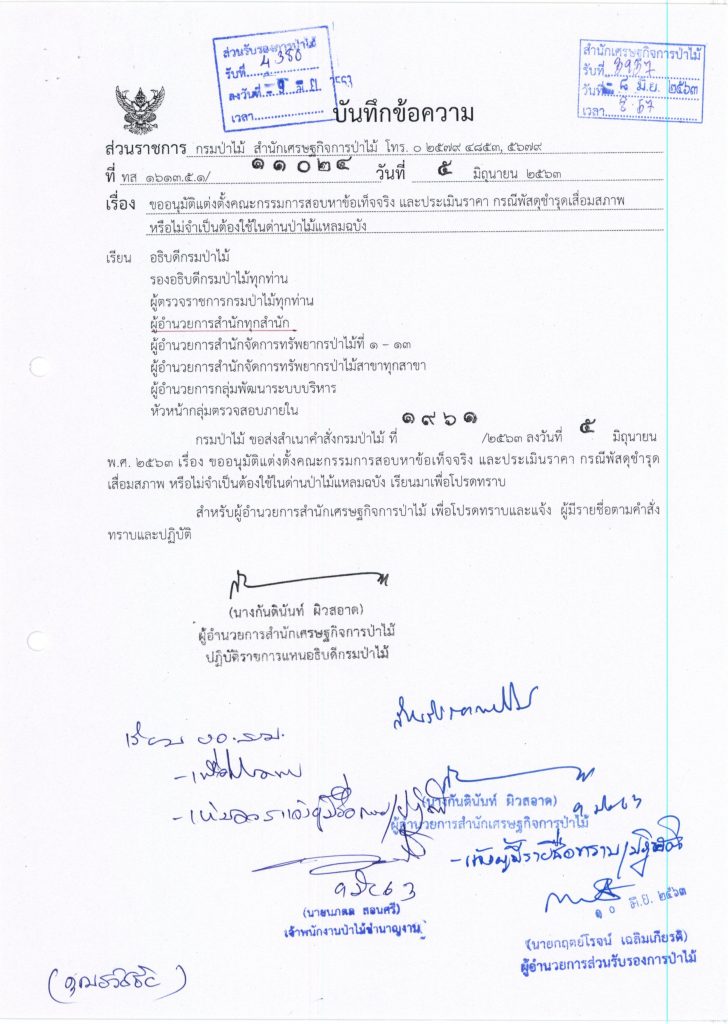 ส่วนรับรองการป่าไม้
รับที่ 4380
ลงวันที่ ๙ มิ.ย. ๒๕๖๓
เวลา
สำนักเศรษฐกิจการป่าไม้
รับที่
วันที่ ๘ มิ.ย. ๒๕๖๓
เวลา
บันทึกข้อความ
ส่วนราชการ กรมป่าไม้ สำนักเศรษฐกิจการป่าไม้ โทร. ๐ ๒๕๗๙ ๔๘๕๓, ๕๖๗๙
ที่ ทส ๑๖๑๓.๕.๑/ ๑๑๐๒๔ วันที่ ๕ มิถุนายน ๒๕๖๓
เรื่อง ขออนุมัติแต่งตั้งคณะกรรมการสอบหาข้อเท็จจริง และประเมินราคา กรณีพัสดุชำรุดเสื่อมสภาพ
หรือไม่จำเป็นต้องใช้ในด่านป่าไม้แหลมฉบัง
เรียน อธิบดีกรมป่าไม้
รองอธิบดีกรมป่าไม้ทุกท่าน
ผู้ตรวจราชการกรมป่าไม้ทุกท่าน
ผู้อำนวยการสำนักทุกสำนัก
ผู้อำนวยการสำนักจัดการทรัพยากรป่าไม้ที่ ๑ - ๑๓
ผู้อำนวยการสำนักจัดการทรัพยากรป่าไม้สาขาทุกสาขา
ผู้อำนวยการกลุ่มพัฒนาระบบบริหาร
หัวหน้ากลุ่มตรวจสอบภายใน
กรมป่าไม้ ขอส่งสำเนาคำสั่งกรมป่าไม้ ที่ ๑๙๖๑ /๒๕๖๓ ลงวันที่ ๕ มิถุนายน
พ.ศ. ๒๕๖๓ เรื่อง ขออนุมัติแต่งตั้งคณะกรรมการสอบหาข้อเท็จจริง และประเมินราคา กรณีพัสดุชำรุด
เสื่อมสภาพ หรือไม่จำเป็นต้องใช้ในด่านป่าไม้แหลมฉบัง เรียนมาเพื่อโปรดทราบ
สำหรับผู้อำนวยการสำนักเศรษฐกิจการป่าไม้ เพื่อโปรดทราบและแจ้ง ผู้มีรายชื่อตามคำสั่ง
ทราบและปฏิบัติ
(นางกันตินันท์ ผิวสอาด)
ผู้อำนวยการสำนักเศรษฐกิจการป่าไม้
ปฏิบัติราชการแทนอธิบดีกรมป่าไม้
ส่วนรับรองการป่าไม้
เรียน ผอ.
- เพื่อโปรดทราบ
(นางกันตินันท์ ผิวสอาด)
ผู้อำนวยการสำนักเศรษฐกิจการป่าไม้
- แจ้งผู้มีรายชื่อทราบ/ปฏิบัติ
สอนศรี)
เจ้าพนักงานป่าไม้ชำนาญงาน
๑๐ มิ.ย. ๒๕๖๓
(นายกฤตย์โรจน์ เฉลิมเกียรติ)
ผู้อำนวยการส่วนรับรองการป่าไม้